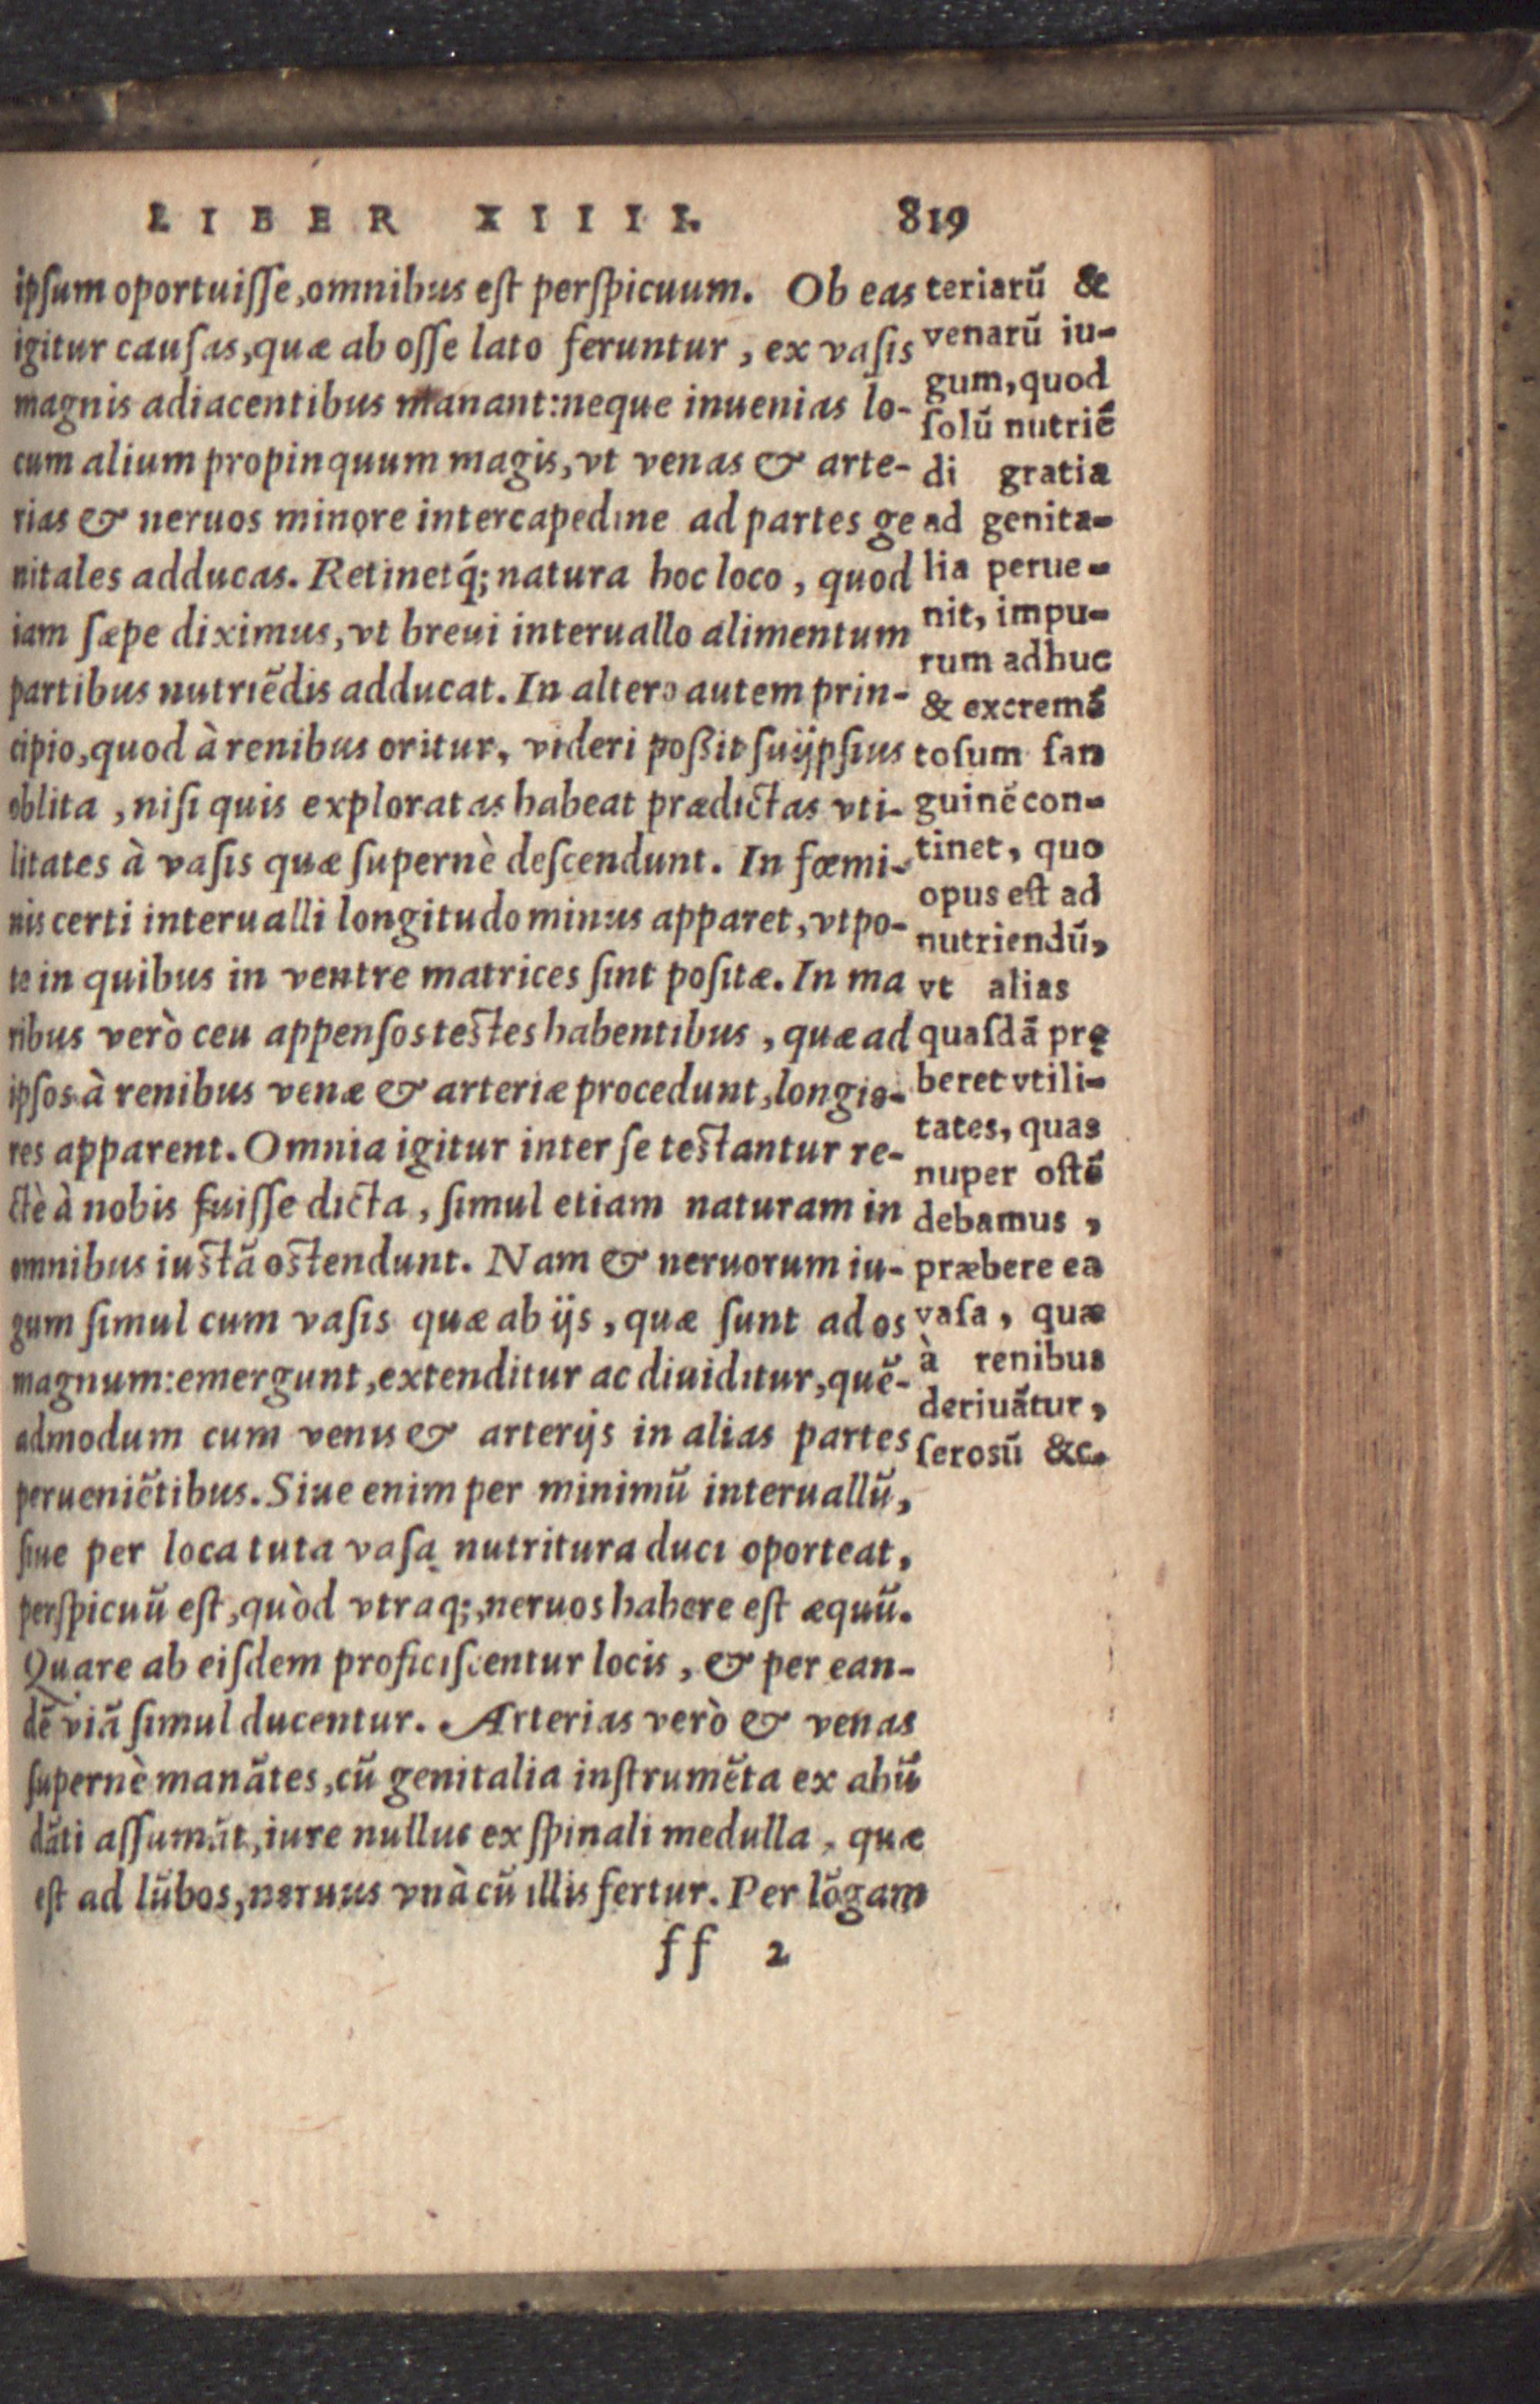 LIBER XIIII. 819
ipſum oportuiſſe, omnibus eſt perſpicuum. Ob eas
igitur cauſas, quæ ab oſſe lato feruntur, ex vaſis
magnis adiacentibus manant: neque inuenias lo-
cum alium propinquum magis, vt venas & arte-
rias & neruos minore intercapedine ad partes ge
nitales adducas. Retinetq́; natura hoc loco, quod
iam ſæpe diximus, vt breui interuallo alimentum
partibus nutriẽdis adducat. In altero autem prin-
cipio, quod à renibus oritur, videri poßit ſuijpſius
oblita, niſi quis exploratas habeat prædictas vti-
litates à vaſis quæ ſupernè deſcendunt. In fœmi-
nis certi interualli longitudo minus apparet, vtpo-
te in quibus in ventre matrices ſint poſitæ. In ma
ribus verò ceu appenſos teſtes habentibus, quæ ad
ipſos à renibus venæ & arteriæ procedunt, longio-
res apparent. Omnia igitur inter ſe teſtantur re-
ctè à nobis fuiſſe dicta, ſimul etiam naturam in
omnibus iuſtã oſtendunt. Nam & neruorum iu-
gum ſimul cum vaſis quæ ab ijs, quæ ſunt ad os
magnum: emergunt, extenditur ac diuiditur, quẽ-
admodum cum venis & arterijs in alias partes
perueniẽtibus. Siue enim per minimũ interuallũ,
ſiue per loca tuta vaſa nutritura duci oporteat,
perſpicuũ eſt, quòd vtraq;, neruos habere eſt æquũ.
Quare ab eiſdem proficiſcentur locis, & per ean-
dẽ viã ſimul ducentur. Arterias verò & venas
ſupernè manãtes, cũ genitalia inſtrumẽta ex abũ
dãti aſſumãt, iure nullus ex ſpinali medulla, quæ
eſt ad lũbos, neruus vnà cũ illis fertur. Per lõgam
ff 2
teriarũ &
venarũ iu-
gum, quod
ſolũ nutriẽ
di gratia
ad genita-
lia perue-
nit, impu-
rum adhuc
& excremẽ
toſum ſan
guinẽ con-
tinet, quo
opus eſt ad
nutriendũ,
vt alias
quaſdã prę
beret vtili-
tates, quas
nuper oſtẽ
debamus,
præbere ea
vaſa, quæ
à renibus
deriuãtur,
ſeroſũ &c.